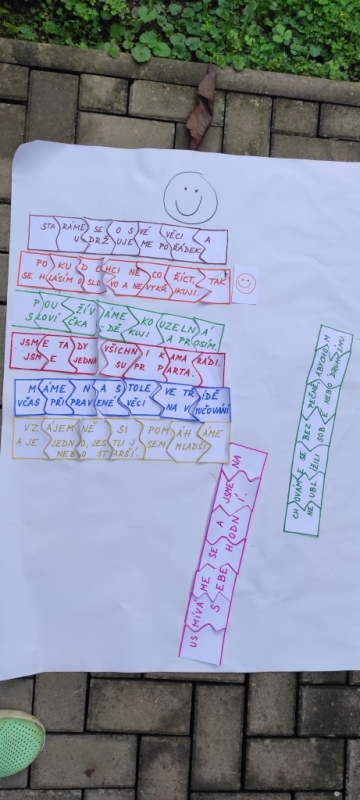 STARÁME SE O SVÉ VĚCI A
UDRŽUJEME POŘÁDEK.
POKUD CHCI NĚCO ŘÍCT, TAK
SE HLÁSÍM O SLOVO A NEVYKŘIKUJI.
POUŽÍVÁME KOUZELNÁ
SLOVÍČKA DĚKUJI A PROSÍM.
JSME TADY VŠICHNI KAMARÁDI.
JSME JEDNA SUPR PARTA.
MÁME NA STOLE VE TŘÍDĚ
VČAS PŘIPRAVENÉ VĚCI NA VYUČOVÁNÍ
VZÁJEMNĚ SI POMÁHÁME
A JE JEDNO, JESTLI JSEM MLADŠÍ
NEBO STARŠÍ.
USMÍVÁME SE A JSME NA
SEBE HODNÍ.
CHOVÁME SE BEZPEČNĚ, ABYCHOM
NEUBLÍŽILI SOBĚ NEBO DRUHÉMU.